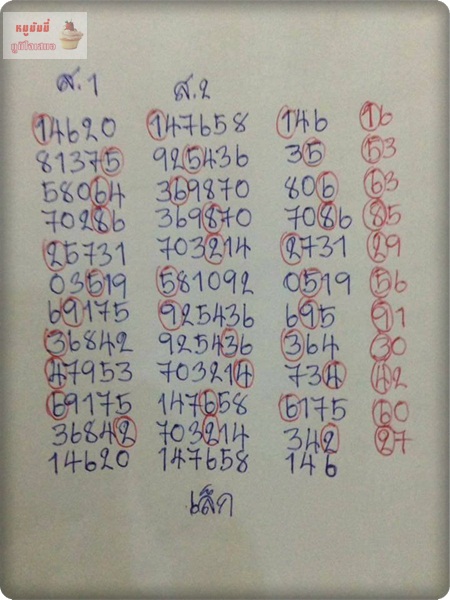 ส.1 ส.2
14620 147658 146 16
81375 925436 35 53
58064 369870 806 63
70286 369870 7086 85
25731 703214 2731 29
03519 581092 0519 56
69175 925436 695 91
36842 925436 364 30
47953 703214 734 42
69175 147658 6175 60
36842 703214 342 27
14620 147658 146